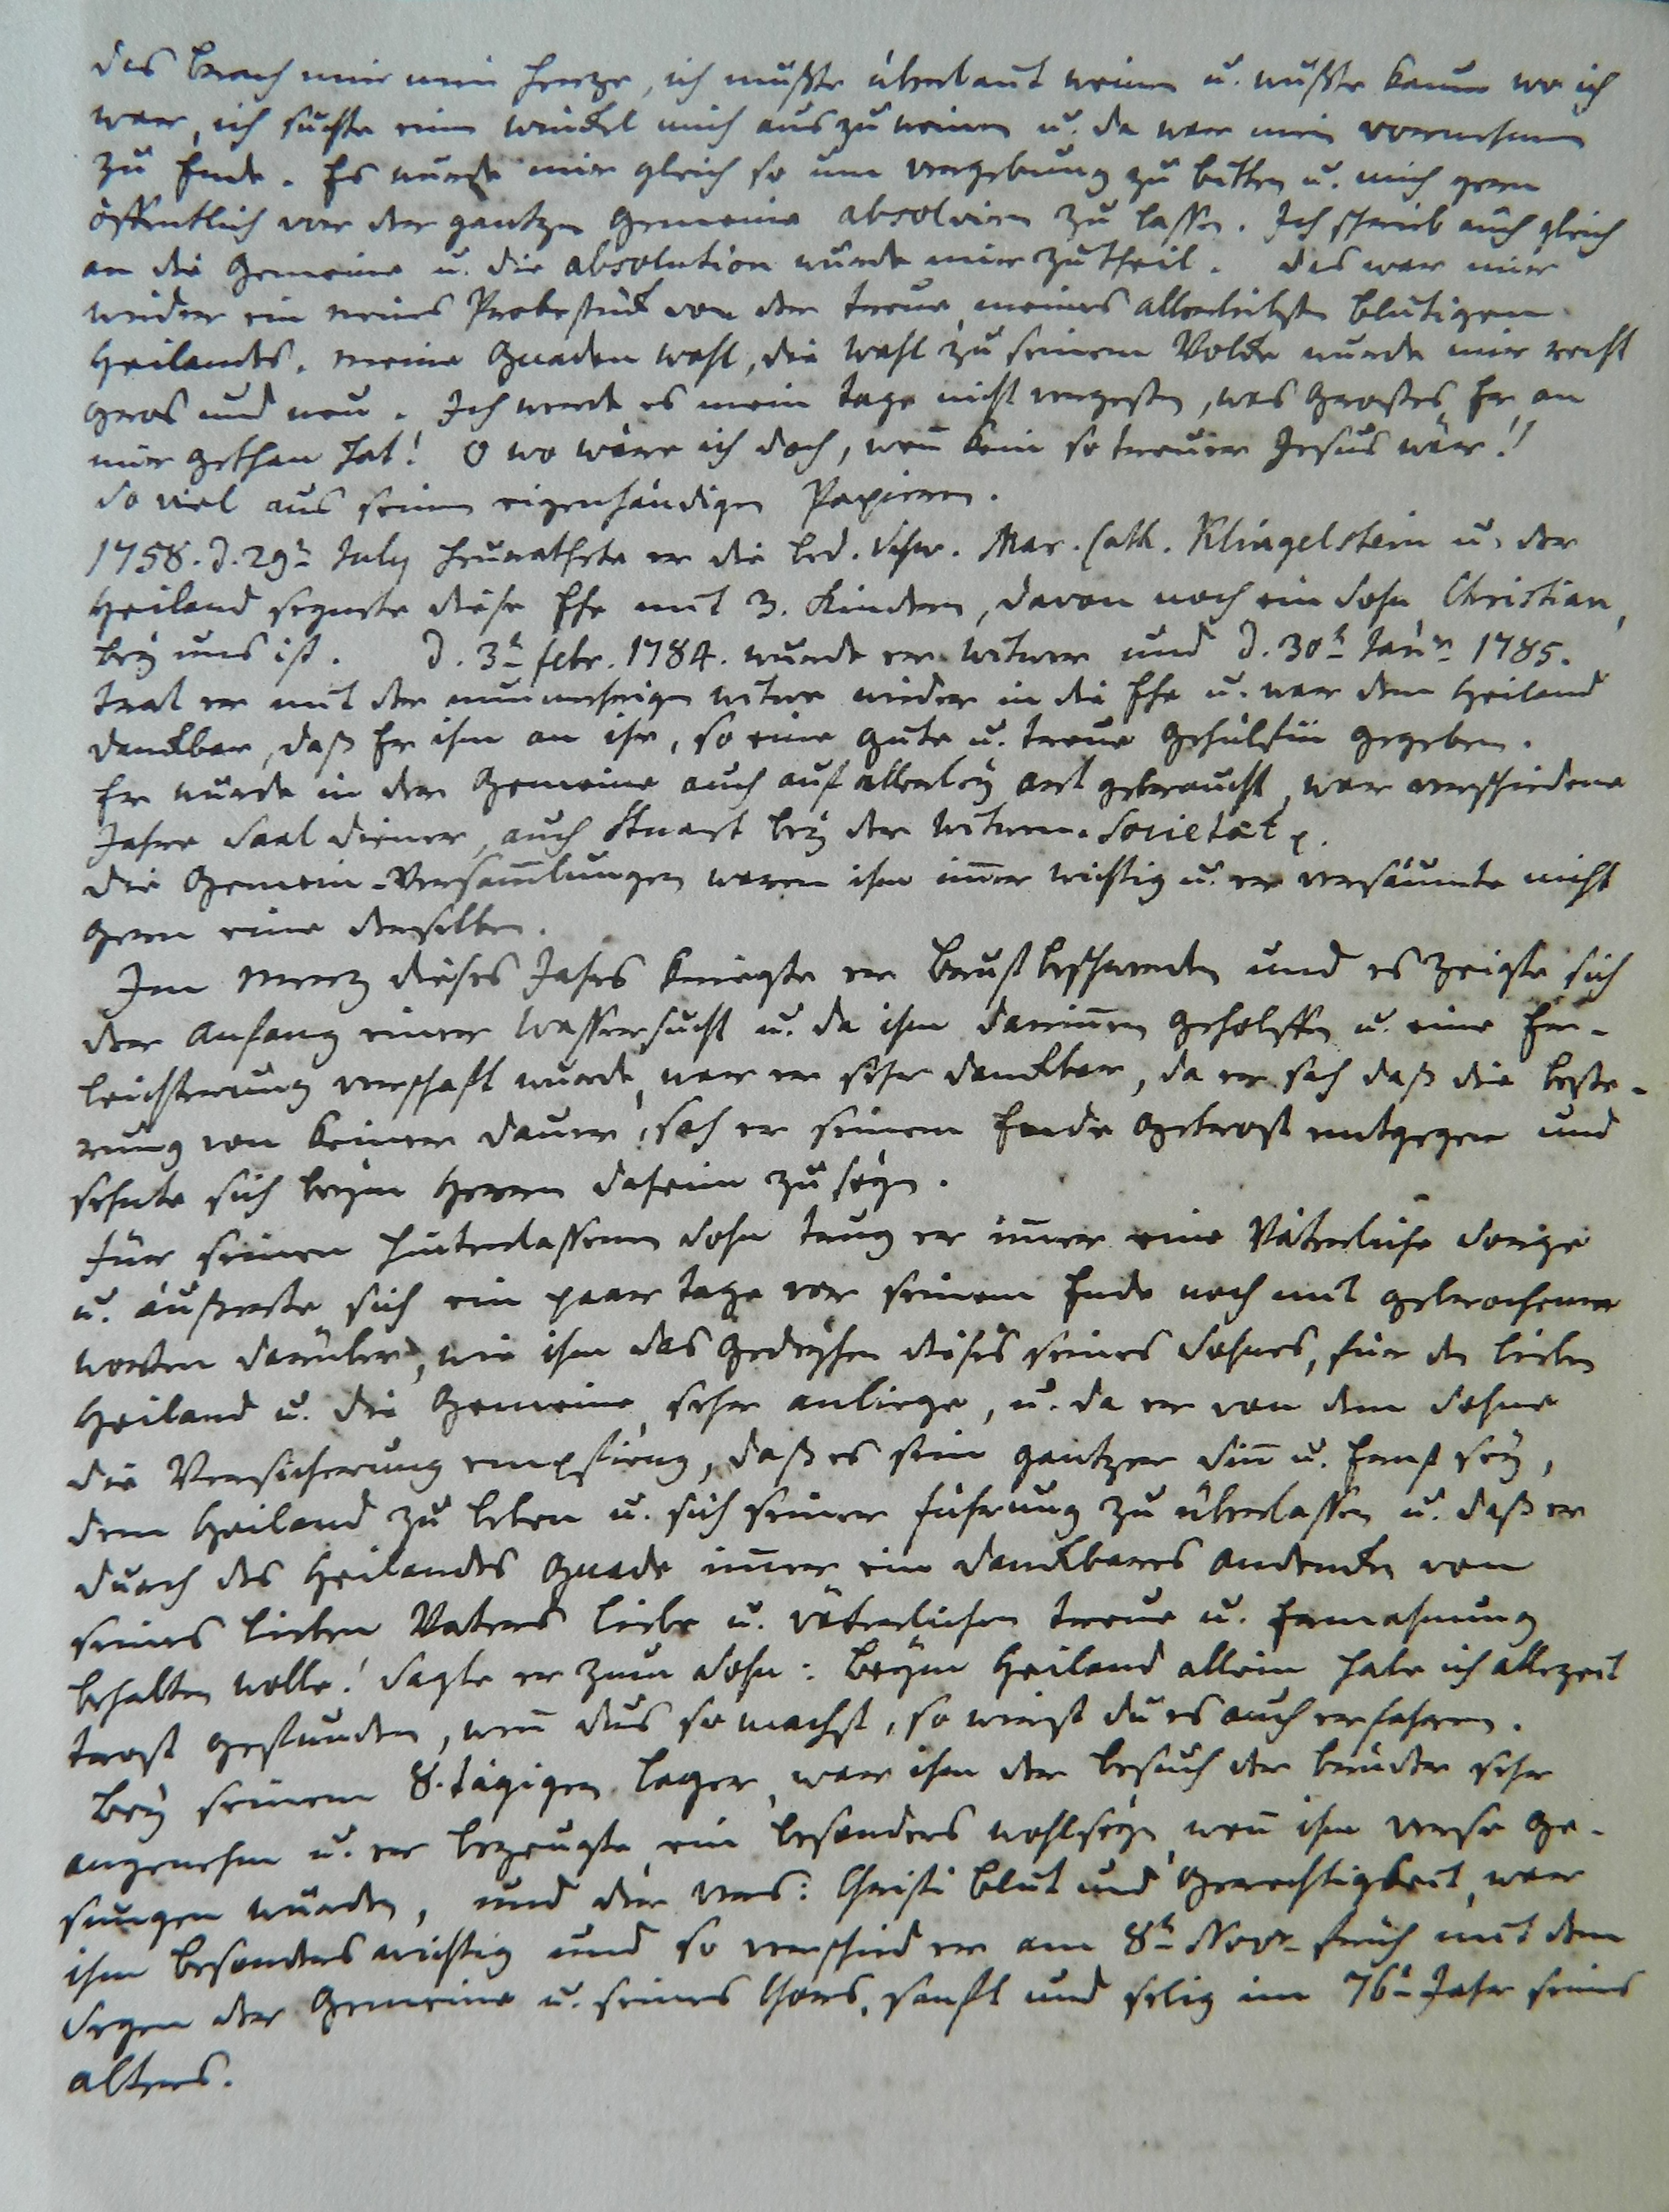 das brach mir mein Herze, ich mußte überlaut weinen u. wußte kaum wo ich
war, ich suchte einen winckel mich auszuweinen u. da war mein vornehmen
zu Ende. Es wurde mir gleich so um vergebung zu bitten u. mich gern
öffentlich vor der gantzen Gemeine absolviren zu lassen. Ich schrieb auch gleich
an die Gemeine u. die absolution wurde mir zu theil. das war mir
wieder ein neues Probestück von der treue meines allerliebsten blutigen
Heilandes. meine Gnaden wahl, die wahl zu seinem Volcke wurde mir recht
gros und neu. Ich werde es mein tage nicht vergessen, was Großes Er an
mir gethan hat! O wo wäre ich doch, weñ kein so treuer Jesus wär!
So viel aus seinen eigenhändigen Papieren.
1758. d. 29t July heurathete er die led. Schw. Mar. Cath. Klingelstein u. der
Heiland segnete diese Ehe mit 3. Kindern, davon noch ein Sohn Christian,
bey uns ist. d. 3t febr. 1784. wurde er witwer und d. 30t Janr 1785.
trat er mit der nunmehrigen witwe wieder in die Ehe u. war dem Heiland
danckbar, daß Er ihm an ihr, so eine gute u. treue Gehülfin gegeben.
Er wurde in der Gemeine auch auf allerley art gebraucht, war verschiedene
Jahre Saal diener, auch Stuart bey der witwer-Societæt p.
die Gemein-Versam̃lungen waren ihm im̃er wichtig u. er versäumte nicht
gern eine derselben.
Im Mertz dieses Jahrs kriegte er Brustbeschwerden und es zeigte sich
der Anfang einer Wassersucht u. da ihm dariñen geholffen u. eine Er-
leichterung verschaft wurde, war er sehr danckbar, da er sah daß die besse-
rung von keiner dauer, sah er seinem Ende getrost entgegen und
sehnte sich beym Herrn daheim zu seyn.
für seinen hinterlassenen Sohn trug er im̃er eine Väterliche Sorge
u. äußerte sich ein paar tage vor seinem Ende noch mit gebrochenen
worten darüber, wie ihm das Gedeyhen dieses seines Sohnes, für den lieben
Heiland u. die Gemeine sehr anliege, u. da er von dem Sohne
die Versicherung empfieng, daß es sein gantzer Siñ u. Ernst sey,
dem Heiland zu leben u. sich seiner führung zu überlassen u. daß er
durch des Heilandes Gnade im̃er ein danckbares Andencken von
seines lieben Vaters liebe u. väterlichen treue u. Ermahnung
behalten wolle! Sagte er zum Sohn: beym Heiland allein habe ich allezeit
trost gefunden, weñ dus so machst, so wirst du es auch erfahren.
Bey seinem 8.tägigen lager, war ihm der besuch der brüder sehr
angenehm u. er bezeugte ein besonders wohlseyn, weñ ihm verse ge-
sungen wurden, und der vers: Christi blut und Gerechtigkeit, war
ihm besonders wichtig und so verschied er am 8t Novr früh mit dem
Segen der Gemeine u. seines Chors, sanft und selig im 76t Jahr seines
alters.